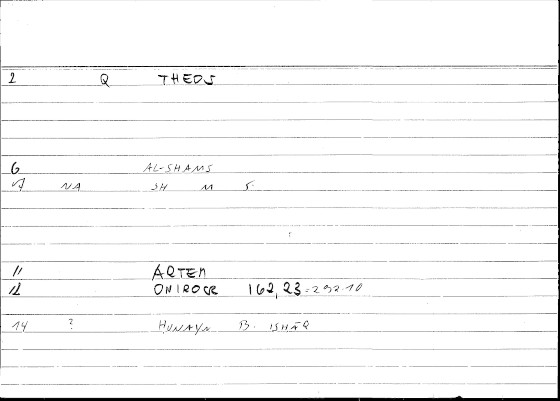 2 Q THEOS
6 AL-SHAMS
7 NA SH M S
11 ARTEM
12 ONIROCR 162,23 = 292.10
14 ? HUNAYN B. ISHĀQ